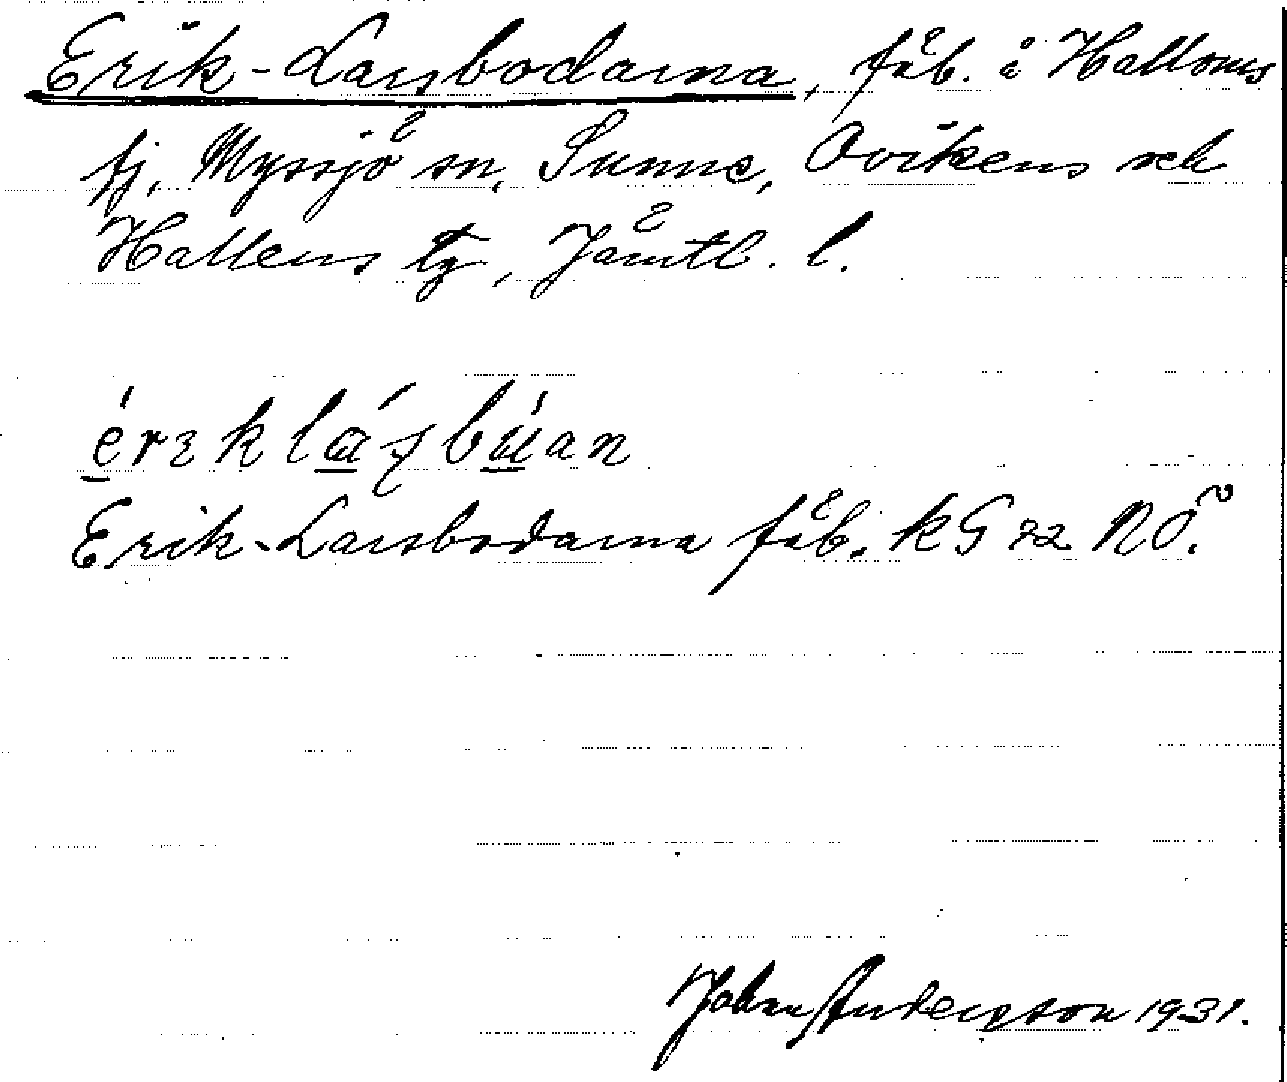 Erik-Larsbodarna, fäb. i Halloms
fj, Myssjö sn, Sunne, Ovikens och
Hallens tg, Jämtl. l.
érɛklásbúan
Erik-Larsbodarna fäb. KG 72 NÖ.
Johan Andersson 1931.